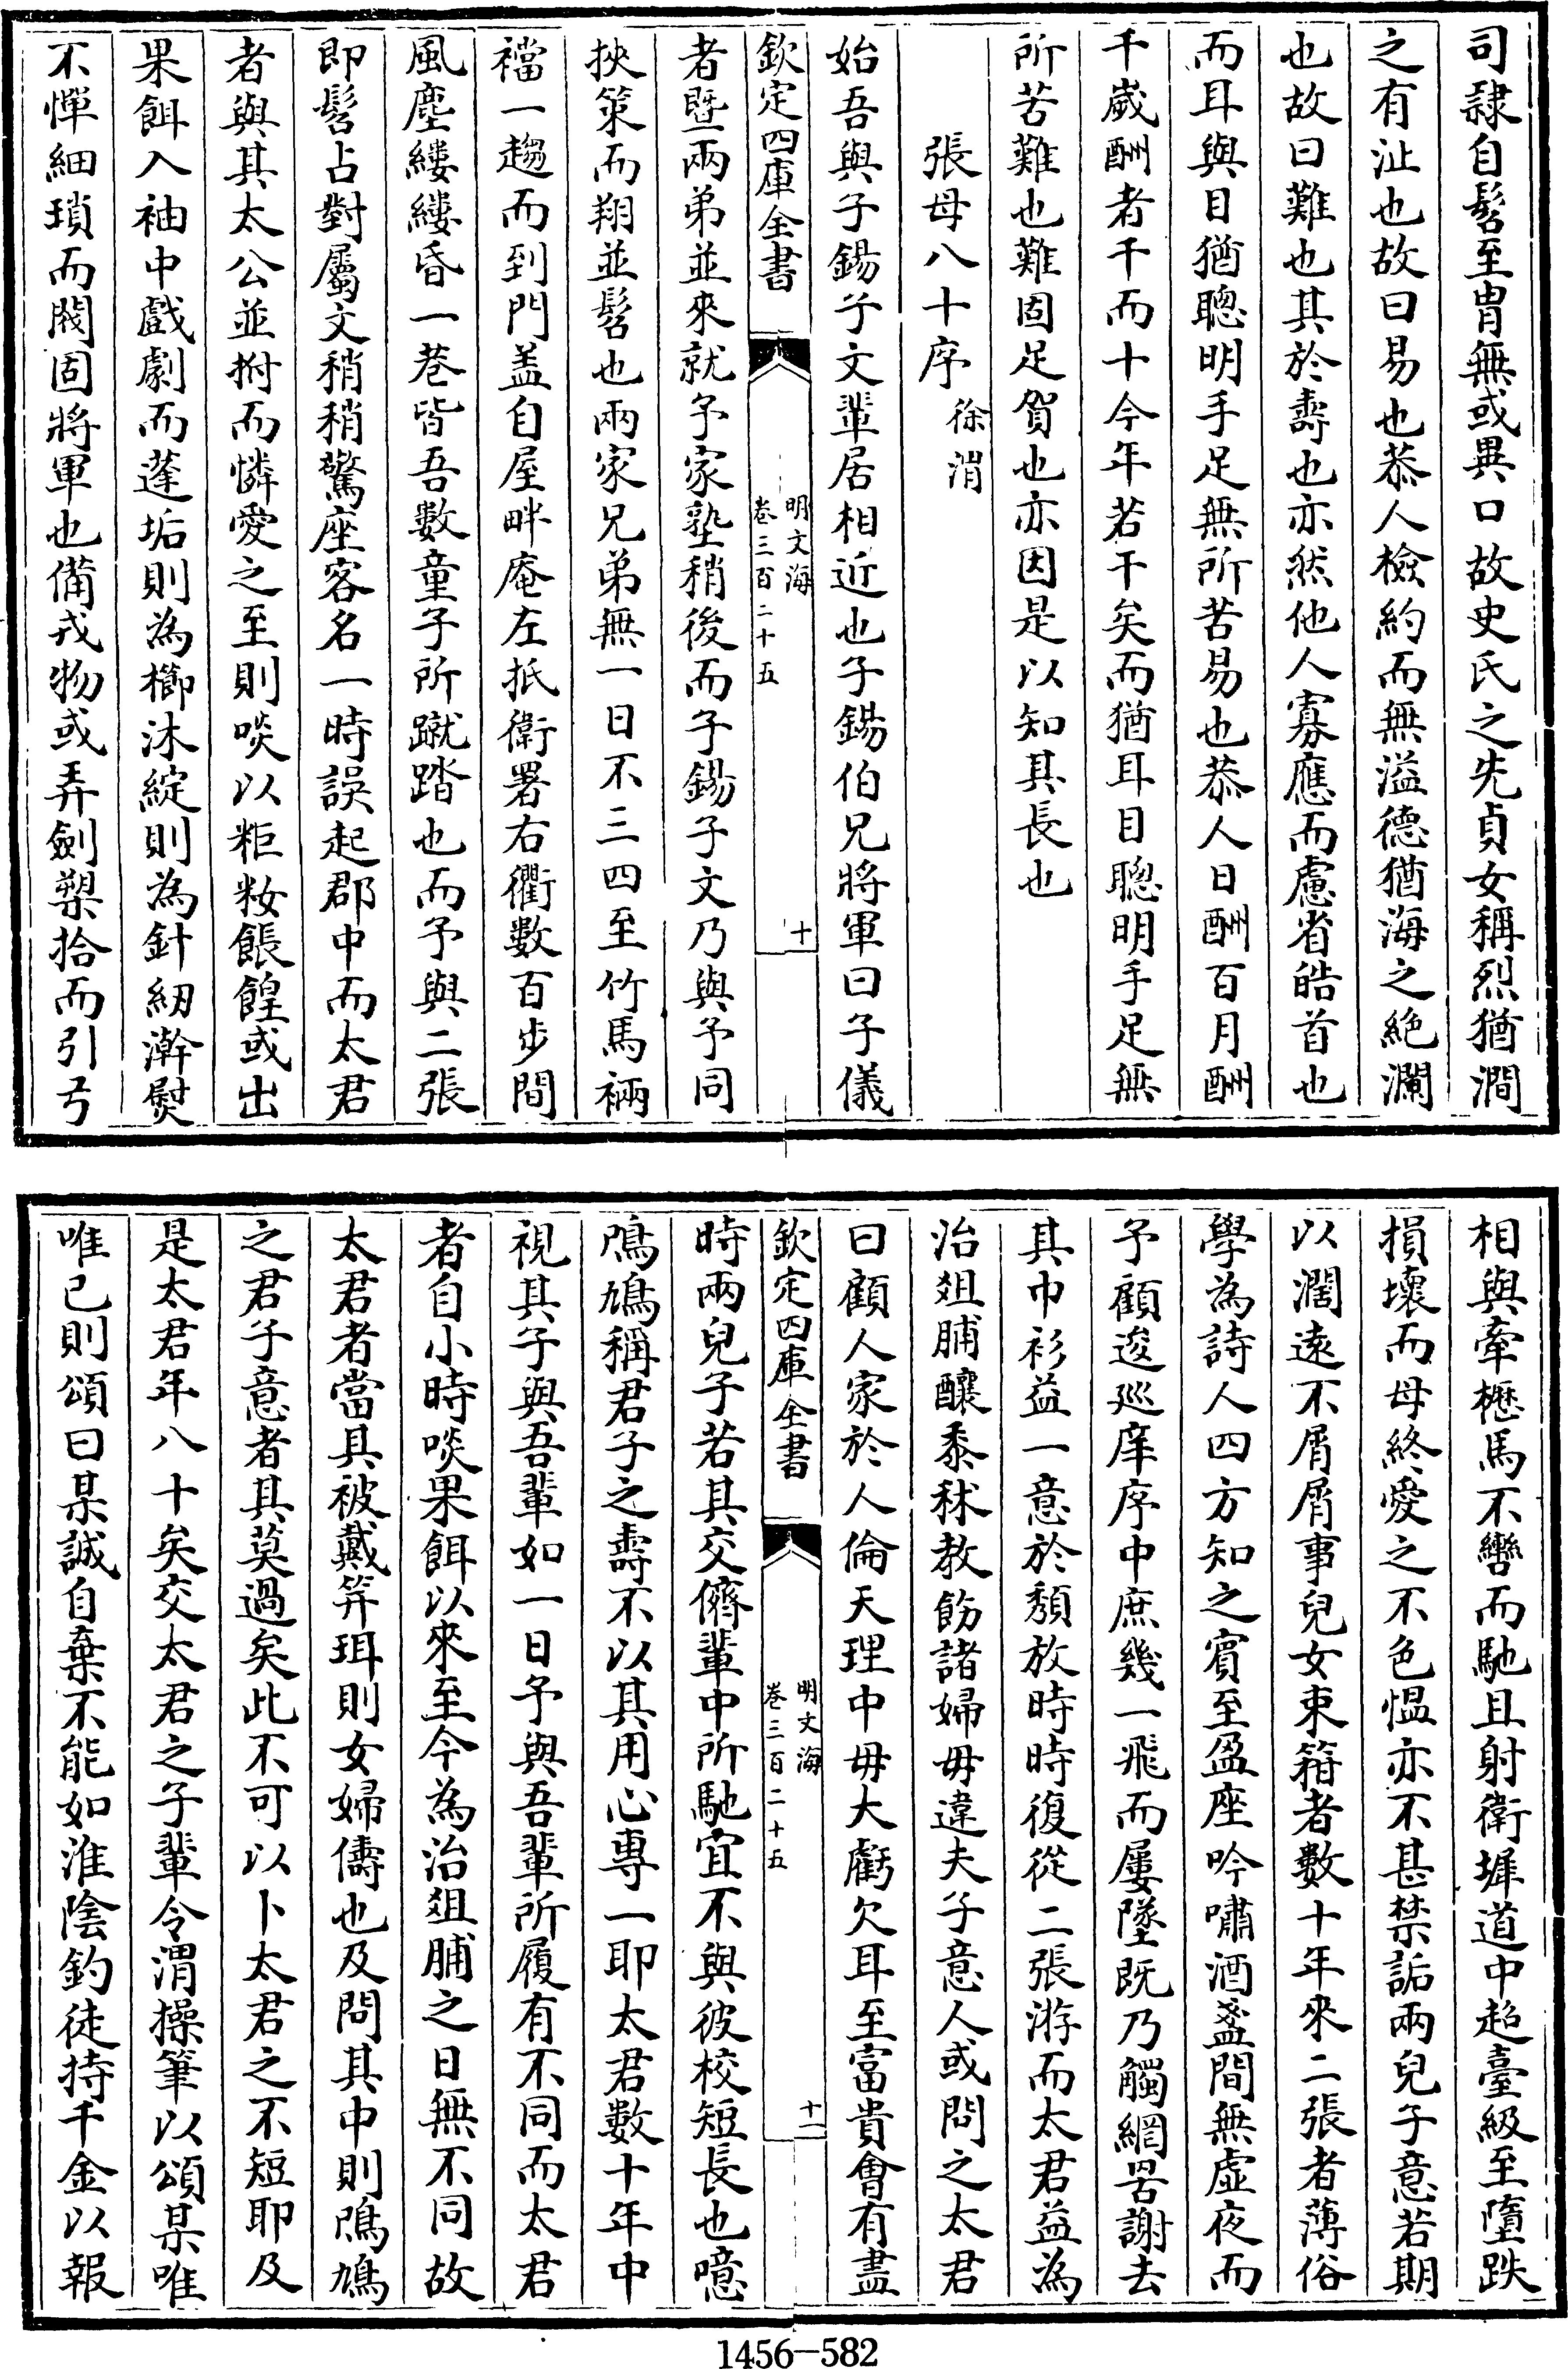 司隸自髫至胄無或異口故史氏之先貞女稱烈猶澗
之有沚也故曰易也恭人檢約而無溢德猶海之絶瀾
也故曰難也其於壽也亦然他人寡應而慮省皓首也
而耳與目猶聰明手足無所苦易也恭人日酬百月酬
千歲酬者千而十今年若干矣而猶耳目聰明手足無
所苦難也難固足賀也亦因是以知其長也
張母八十序 徐渭
始吾與子錫子文輩居相近也子錫伯兄將軍曰子儀
欽定四庫全書 明文海 卷三百二十五 十
者暨兩弟並來就予家塾稍後而子錫子文乃與予同
挾策而翔並髫也兩家兄弟無一日不三四至竹馬裲
襠一趨而到門盖自屋畔庵左抵衛署右衢數百步間
風塵縷縷昏一巷皆吾數童子所蹴踏也而予與二張
即髫占對屬文稍稍驚座客名一時誤起郡中而太君
者與其太公並拊而憐愛之至則啖以粔籹餦餭或出
果餌入袖中戲劇而蓬垢則為櫛沐綻則為針紉澣熨
不憚細瑣而閥固將軍也備戎物或弄劍槊拾而引弓
相與牽櫪馬不轡而馳且射衛墀道中超臺級至墮跌
損壞而母終愛之不色愠亦不甚禁詬兩兒子意若期
以濶遠不屑屑事兒女束箝者數十年來二張者薄俗
學為詩人四方知之賓至盈座吟嘯酒盞間無虛夜而
予顧逡巡庠序中庶幾一飛而屢墜既乃觸網罟謝去
其巾衫益一意於頹放時時復從二張游而太君益為
治俎脯釀黍秫教飭諸婦毋違夫子意人或問之太君
曰顧人家於人倫天理中毋大虧欠耳至富貴會有盡
欽定四庫全書 明文海 卷三百二十五 十一
時兩兒子若其交儕輩中所馳宜不與彼校短長也噫
鳲鳩稱君子之壽不以其用心專一耶太君數十年中
視其子與吾輩如一日予與吾輩所履有不同而太君
者自小時啖果餌以來至今為治俎脯之日無不同故
太君者當其被戴笄珥則女婦儔也及問其中則鳲鳩
之君子意者其莫過矣此不可以卜太君之不短耶及
是太君年八十矣交太君之子輩令渭操筆以頌某唯
唯已則頌曰某誠自棄不能如淮陰釣徒持千金以報
1456-582